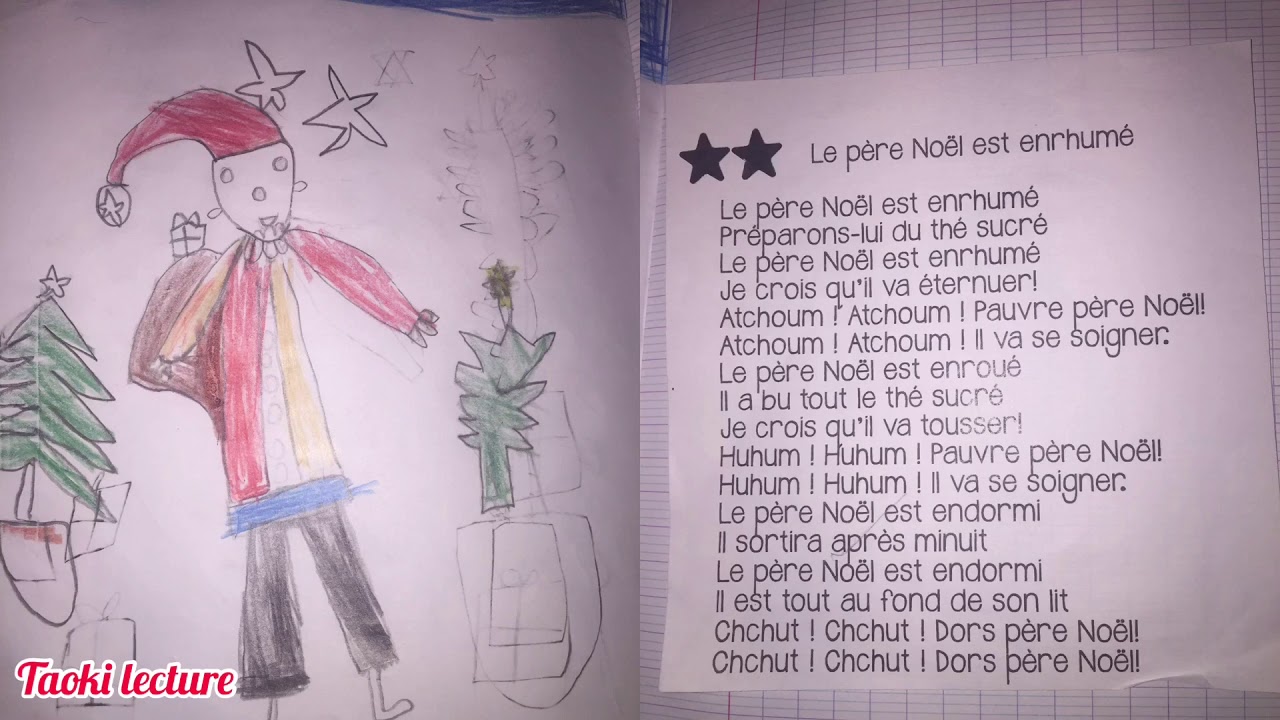 Le père Noël est enrhumé
Le père Noël est enrhumé
Préparons-lui du thé sucré
Le père Noël est enrhumé
Je crois qu'il va éternuer!
Atchoum ! Atchoum ! Pauvre père Noël!
Atchoum ! Atchoum ! Il va se soigner.
Le père Noël est enroué
Il a bu tout le thé sucré
Je crois qu'il va tousser!
Huhum ! Huhum ! Pauvre père Noël!
Huhum ! Huhum ! Il va se soigner.
Le père Noël est endormi
Il sortira après minuit
Le père Noël est endormi
Il est tout au fond de son lit
Chchut ! Chchut ! Dors père Noël!
Chchut ! Chchut ! Dors père Noël!
Taoki lecture